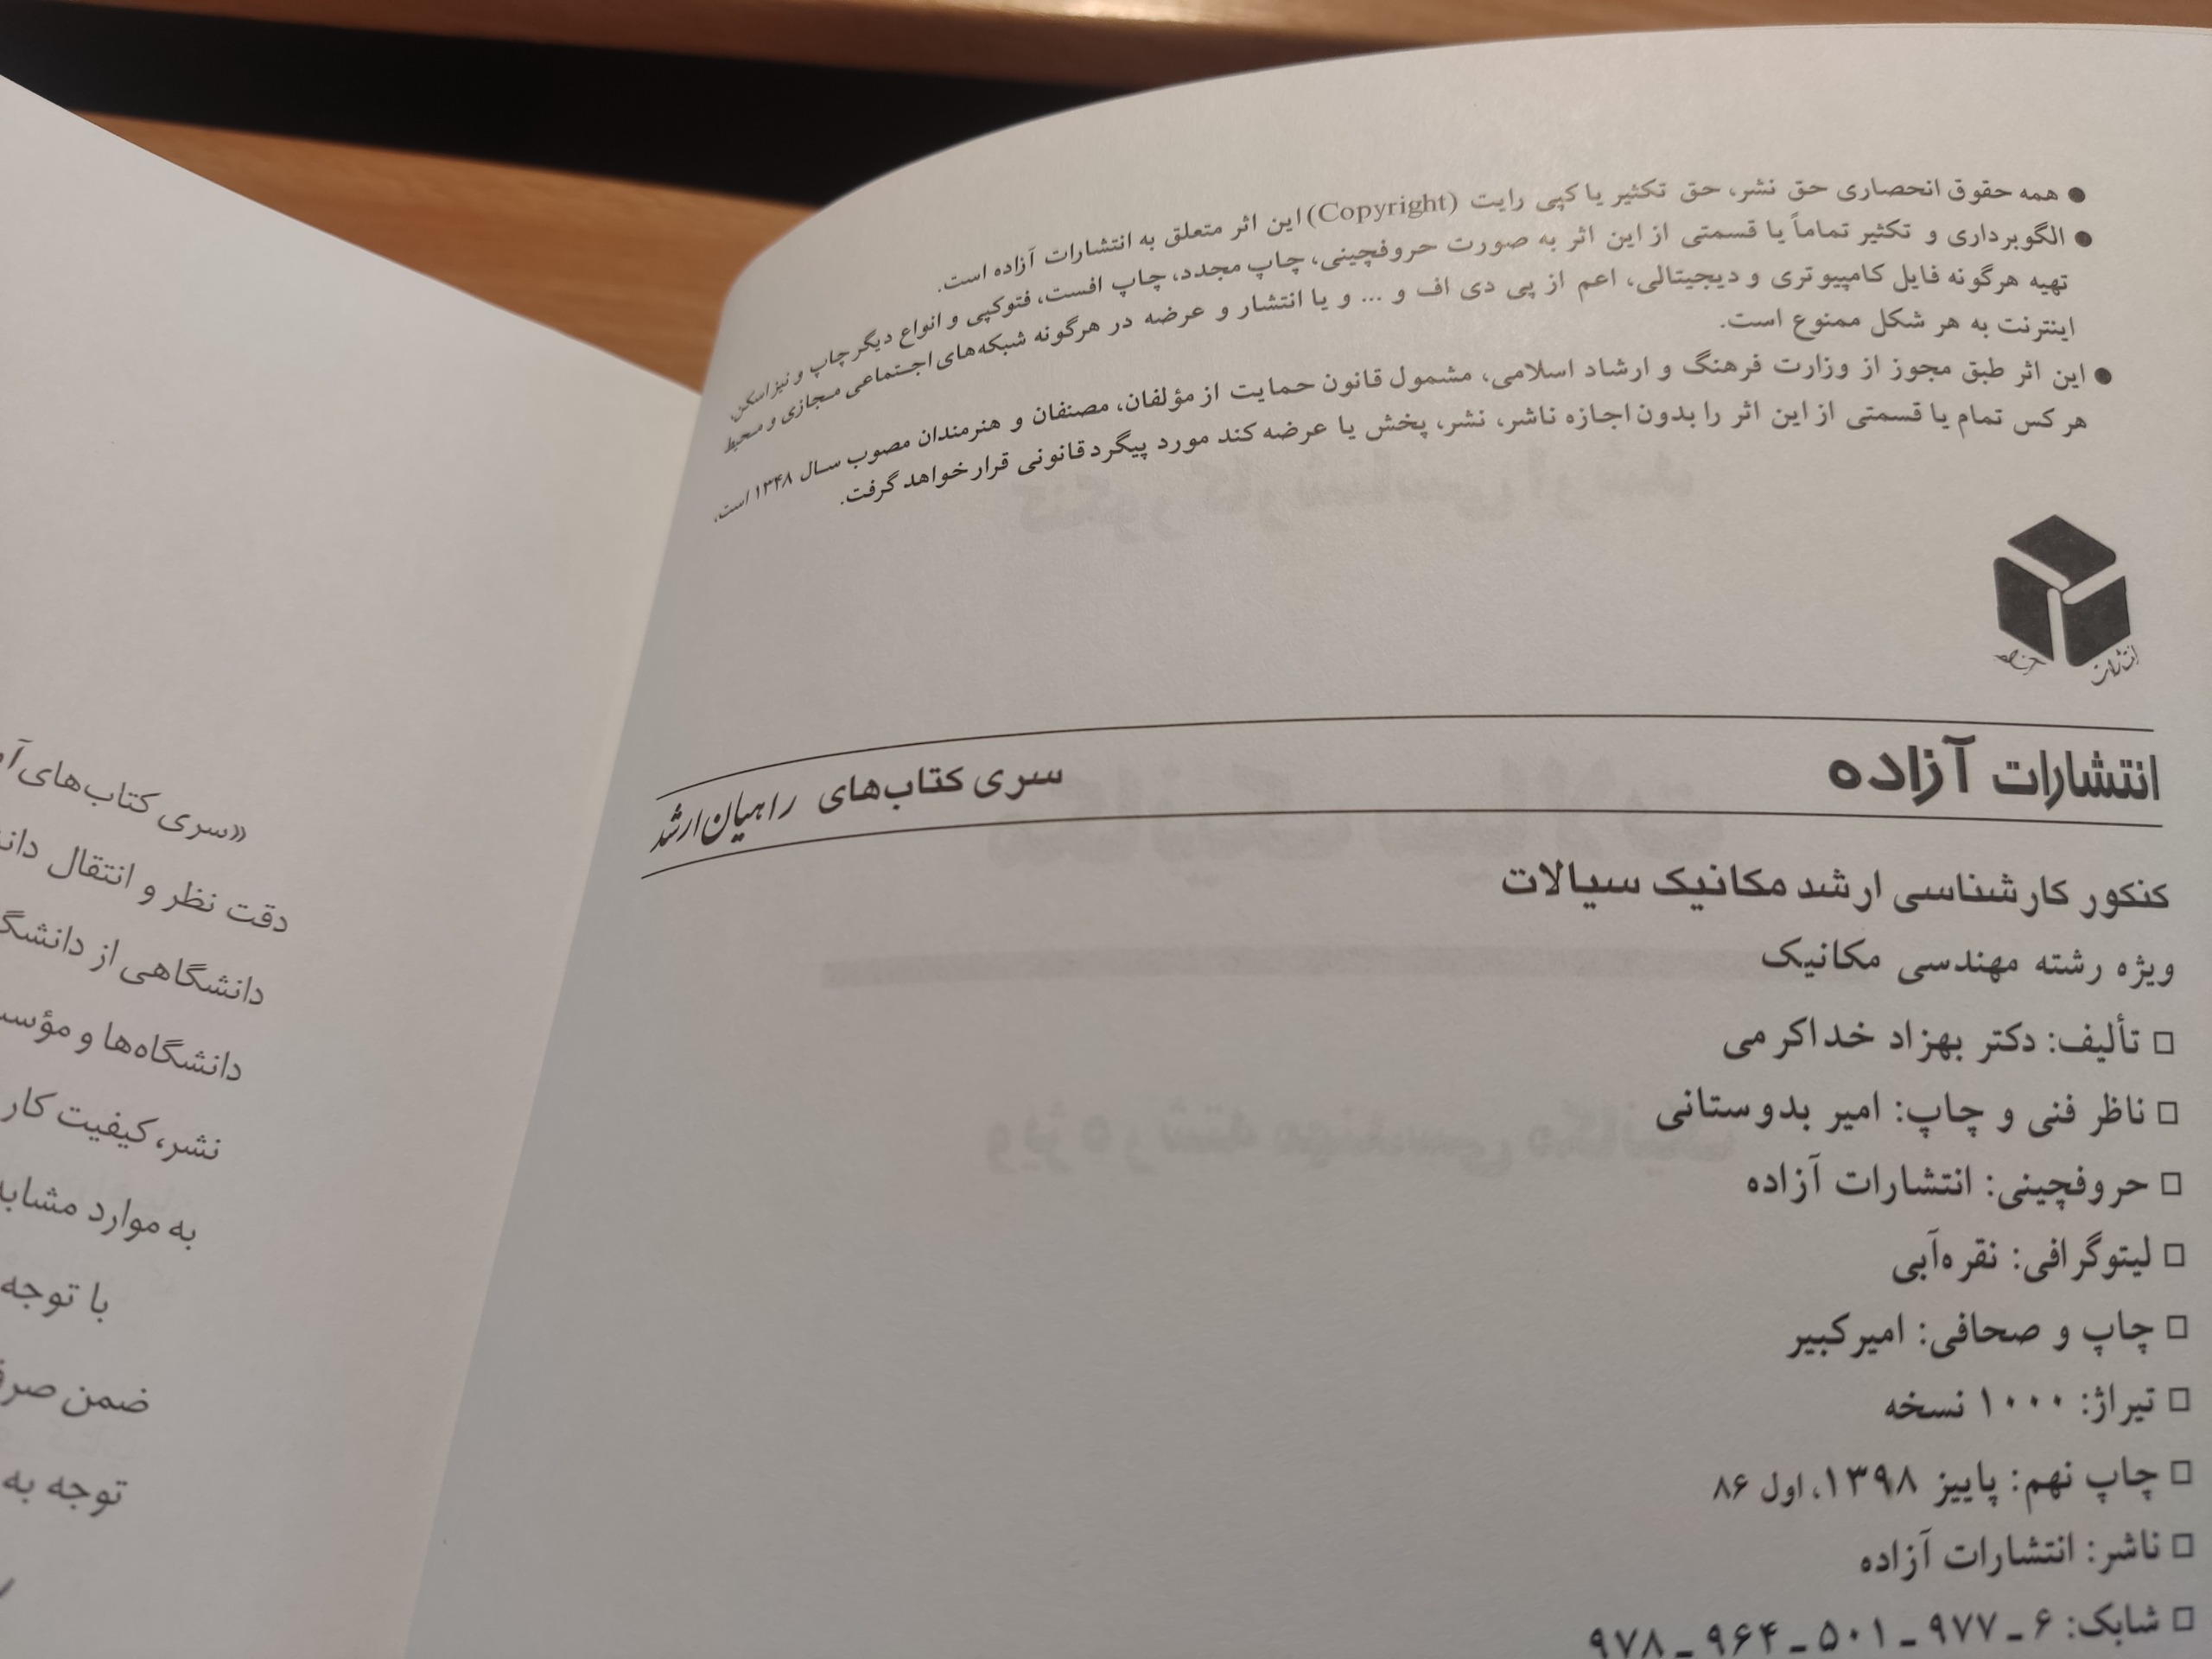 ● همه حقوق انحصاری حق نشر، حق تکثیر یا کپی رایت (Copyright) این اثر متعلق به انتشارات آزاده است.
● الگوبرداری و تکثیر تماماً یا قسمتی از این اثر به صورت حروفچینی، چاپ مجدد، چاپ افست، فتوکپی و انواع دیگر چاپ و نیز اسکن،
تهیه هرگونه فایل کامپیوتری و دیجیتالی، اعم از پی دی اف و ... و یا انتشار و عرضه در هرگونه شبکه‌های اجتماعی مجازی و محیط
اینترنت به هر شکل ممنوع است.
● این اثر طبق مجوز از وزارت فرهنگ و ارشاد اسلامی، مشمول قانون حمایت از مؤلفان، مصنفان و هنرمندان مصوب سال ۱۳۴۸ است.
هر کس تمام یا قسمتی از این اثر را بدون اجازه ناشر، نشر، پخش یا عرضه کند مورد پیگرد قانونی قرار خواهد گرفت.
انتشارات آزاده
انتشارات آزاده سری کتاب‌های راهیان ارشد
کنکور کارشناسی ارشد مکانیک سیالات
ویژه رشته مهندسی مکانیک
□ تألیف: دکتر بهزاد خداکرمی
□ ناظر فنی و چاپ: امیر بدوستانی
□ حروفچینی: انتشارات آزاده
□ لیتوگرافی: نقره‌آبی
□ چاپ و صحافی: امیرکبیر
□ تیراژ: ۱۰۰۰ نسخه
□ چاپ نهم: پاییز ۱۳۹۸، اول ۸۶
□ ناشر: انتشارات آزاده
□ شابک: ۶ ـ ۹۷۷ ـ ۵۰۱ ـ ۹۶۴ ـ ۹۷۸
«سری کتاب‌های
دقت نظر و انتقال
دانشگاهی از
دانشگاه‌ها و
نشر، کیفیت کار
به موارد
با توجه
ضمن
توجه به